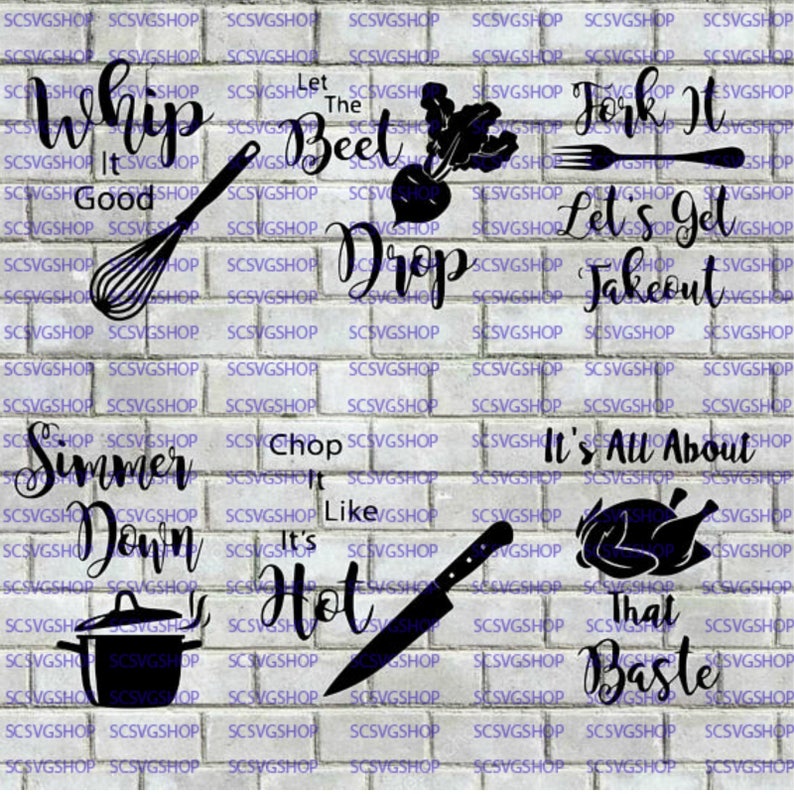 Whip
It
Good
Let
The
Beet
Drop
Fork It
Let's Get
Takeout
Simmer
Down
Chop
It
Like
It's
Hot
It's All About
That
Baste
SCSVGSHOP